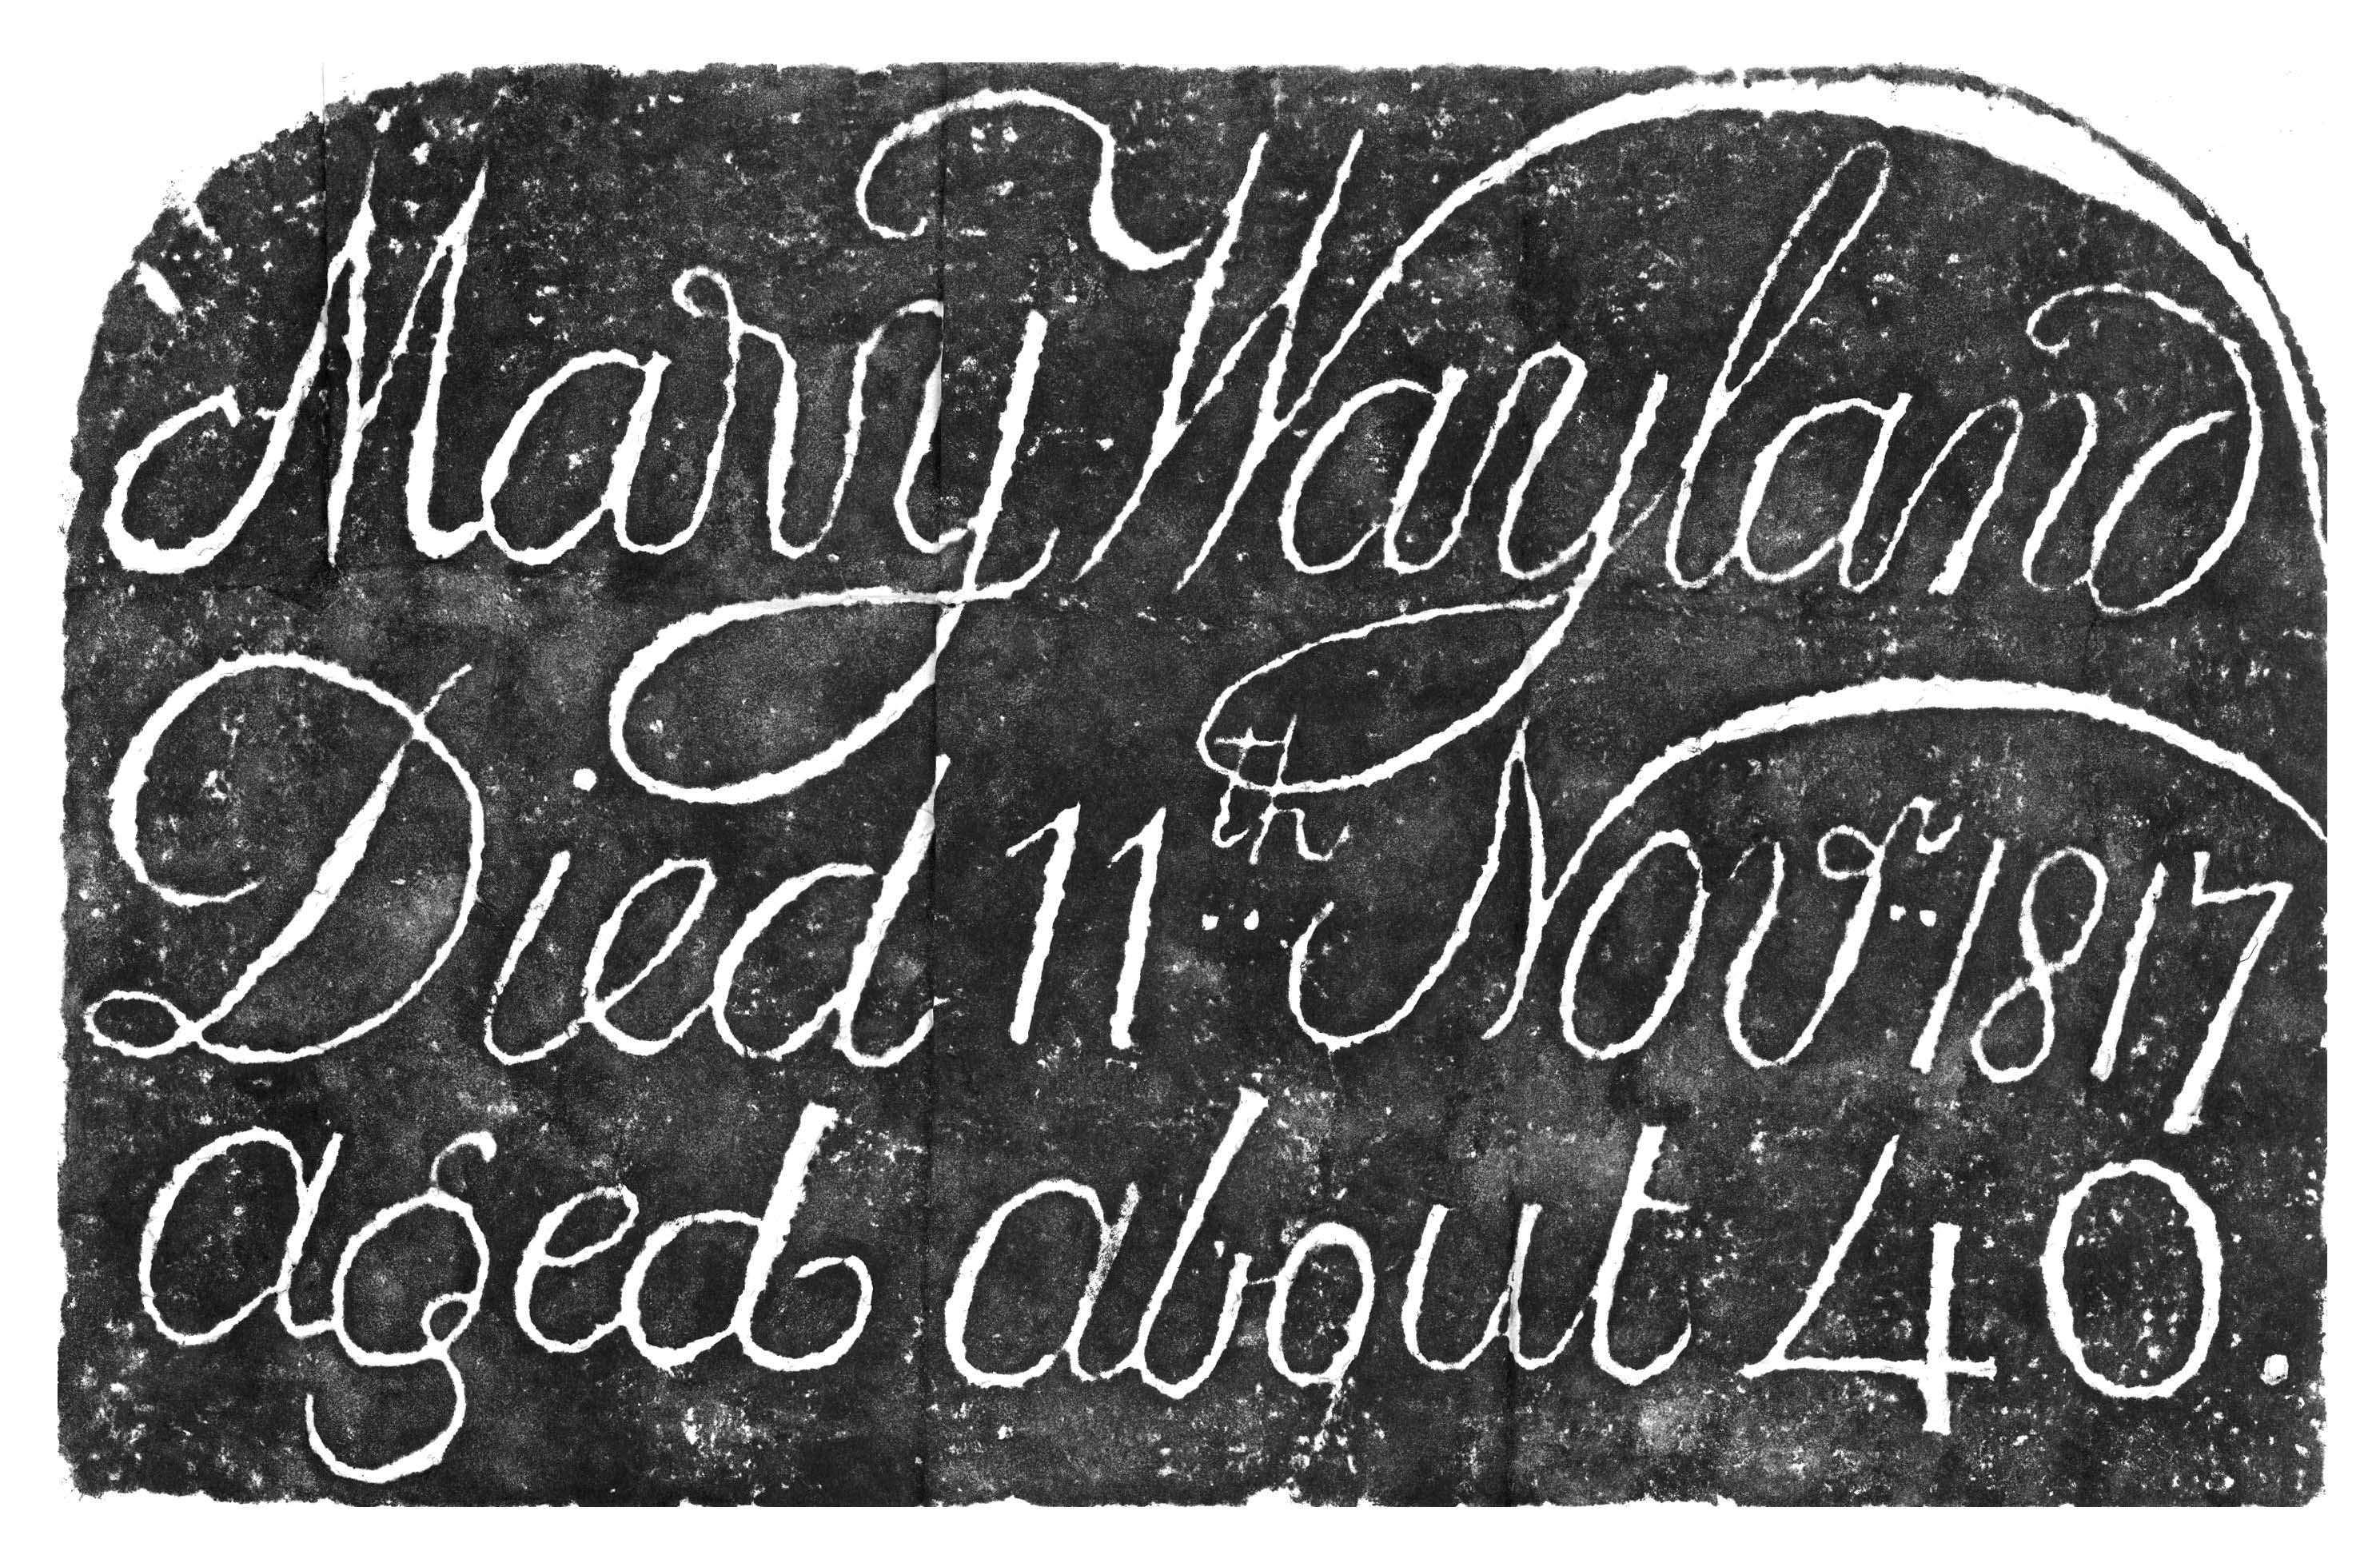 Mary Wayland
Died 11th Novr 1817
aged about 40.